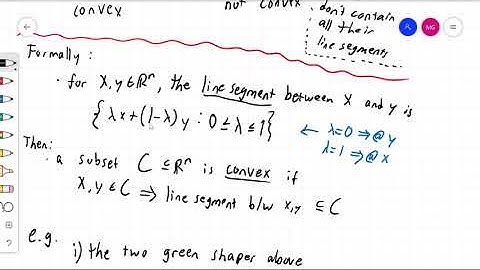 convex
not convex
· don't contain
all their
line segments
MG
Formally:
· for x,y∈ℝⁿ, the line segment between x and y is
{λx+(1-λ)y : 0≤λ≤1}
← λ=0 ⇒ @ y
λ=1 ⇒ @ x
Then:
· a subset C ⊆ ℝⁿ is convex if
x,y ∈ C ⇒ line segment b/w x,y ⊆ C
e.g.
i) the two green shapes above